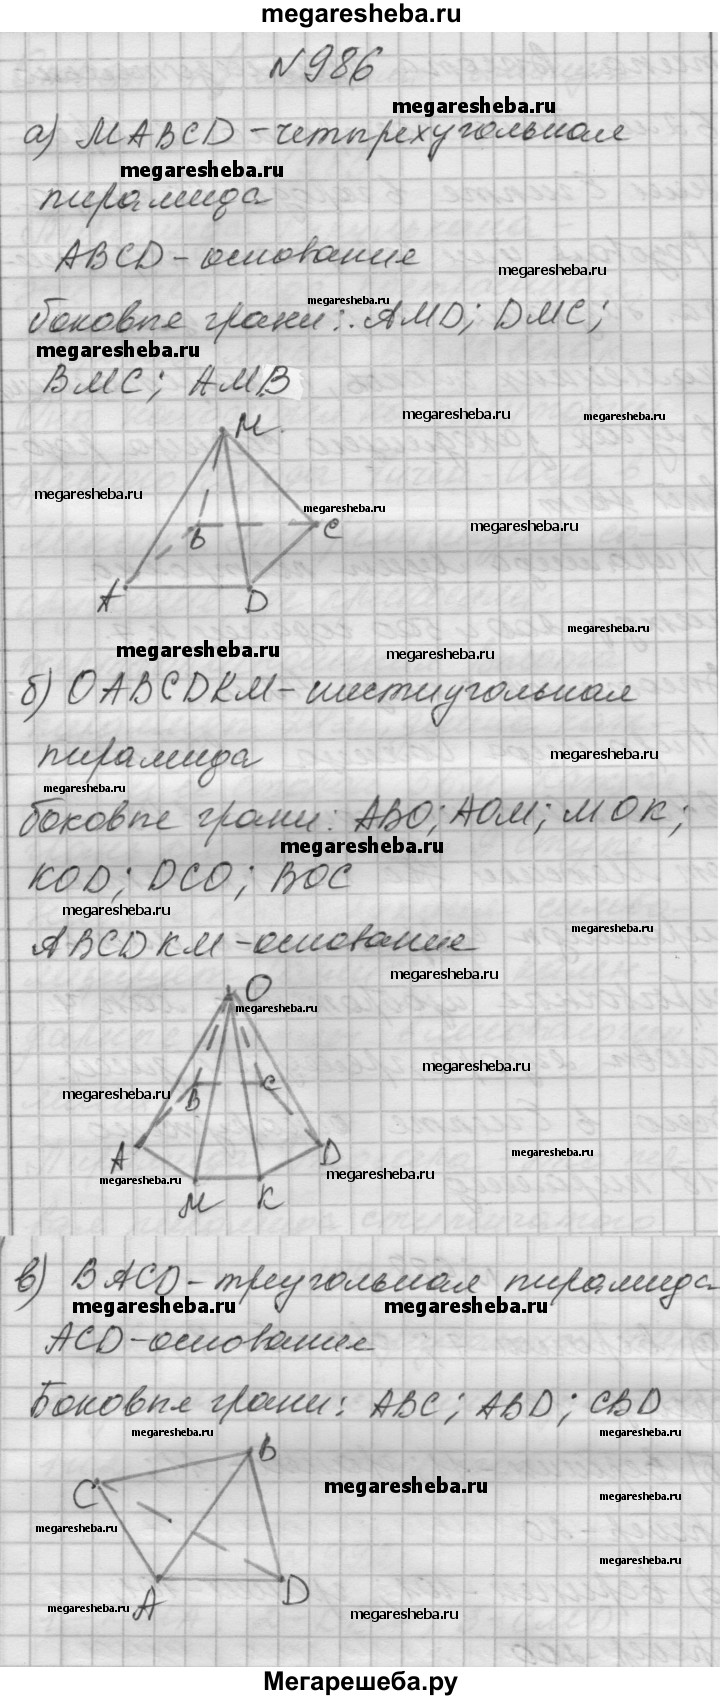 megaresheba.ru
№986
megaresheba.ru
а) МАВСD – четырехугольная
megaresheba.ru
пирамида
АВСD – основание
megaresheba.ru
megaresheba.ru
боковые грани: АМD; DМС;
megaresheba.ru
ВМС; АМВ
megaresheba.ru megaresheba.ru
М
megaresheba.ru megaresheba.ru
megaresheba.ru
В С
А D
megaresheba.ru
megaresheba.ru megaresheba.ru
б) ОАВСDКМ – шестиугольная
пирамида megaresheba.ru
megaresheba.ru
боковые грани: АВО; АОМ; МОК;
megaresheba.ru
КОD; DСО; ВОС
megaresheba.ru
megaresheba.ru
АВСDКМ – основание
megaresheba.ru
О
megaresheba.ru
megaresheba.ru
megaresheba.ru
В С
А D
megaresheba.ru
megaresheba.ru megaresheba.ru
М К
в) ВАСD – треугольная пирамида
megaresheba.ru megaresheba.ru
АСD – основание
Боковые грани: АВС; АВD; СВD
megaresheba.ru megaresheba.ru
В
С megaresheba.ru
megaresheba.ru
megaresheba.ru
megaresheba.ru
А D
megaresheba.ru megaresheba.ru
Мегарешеба.ру